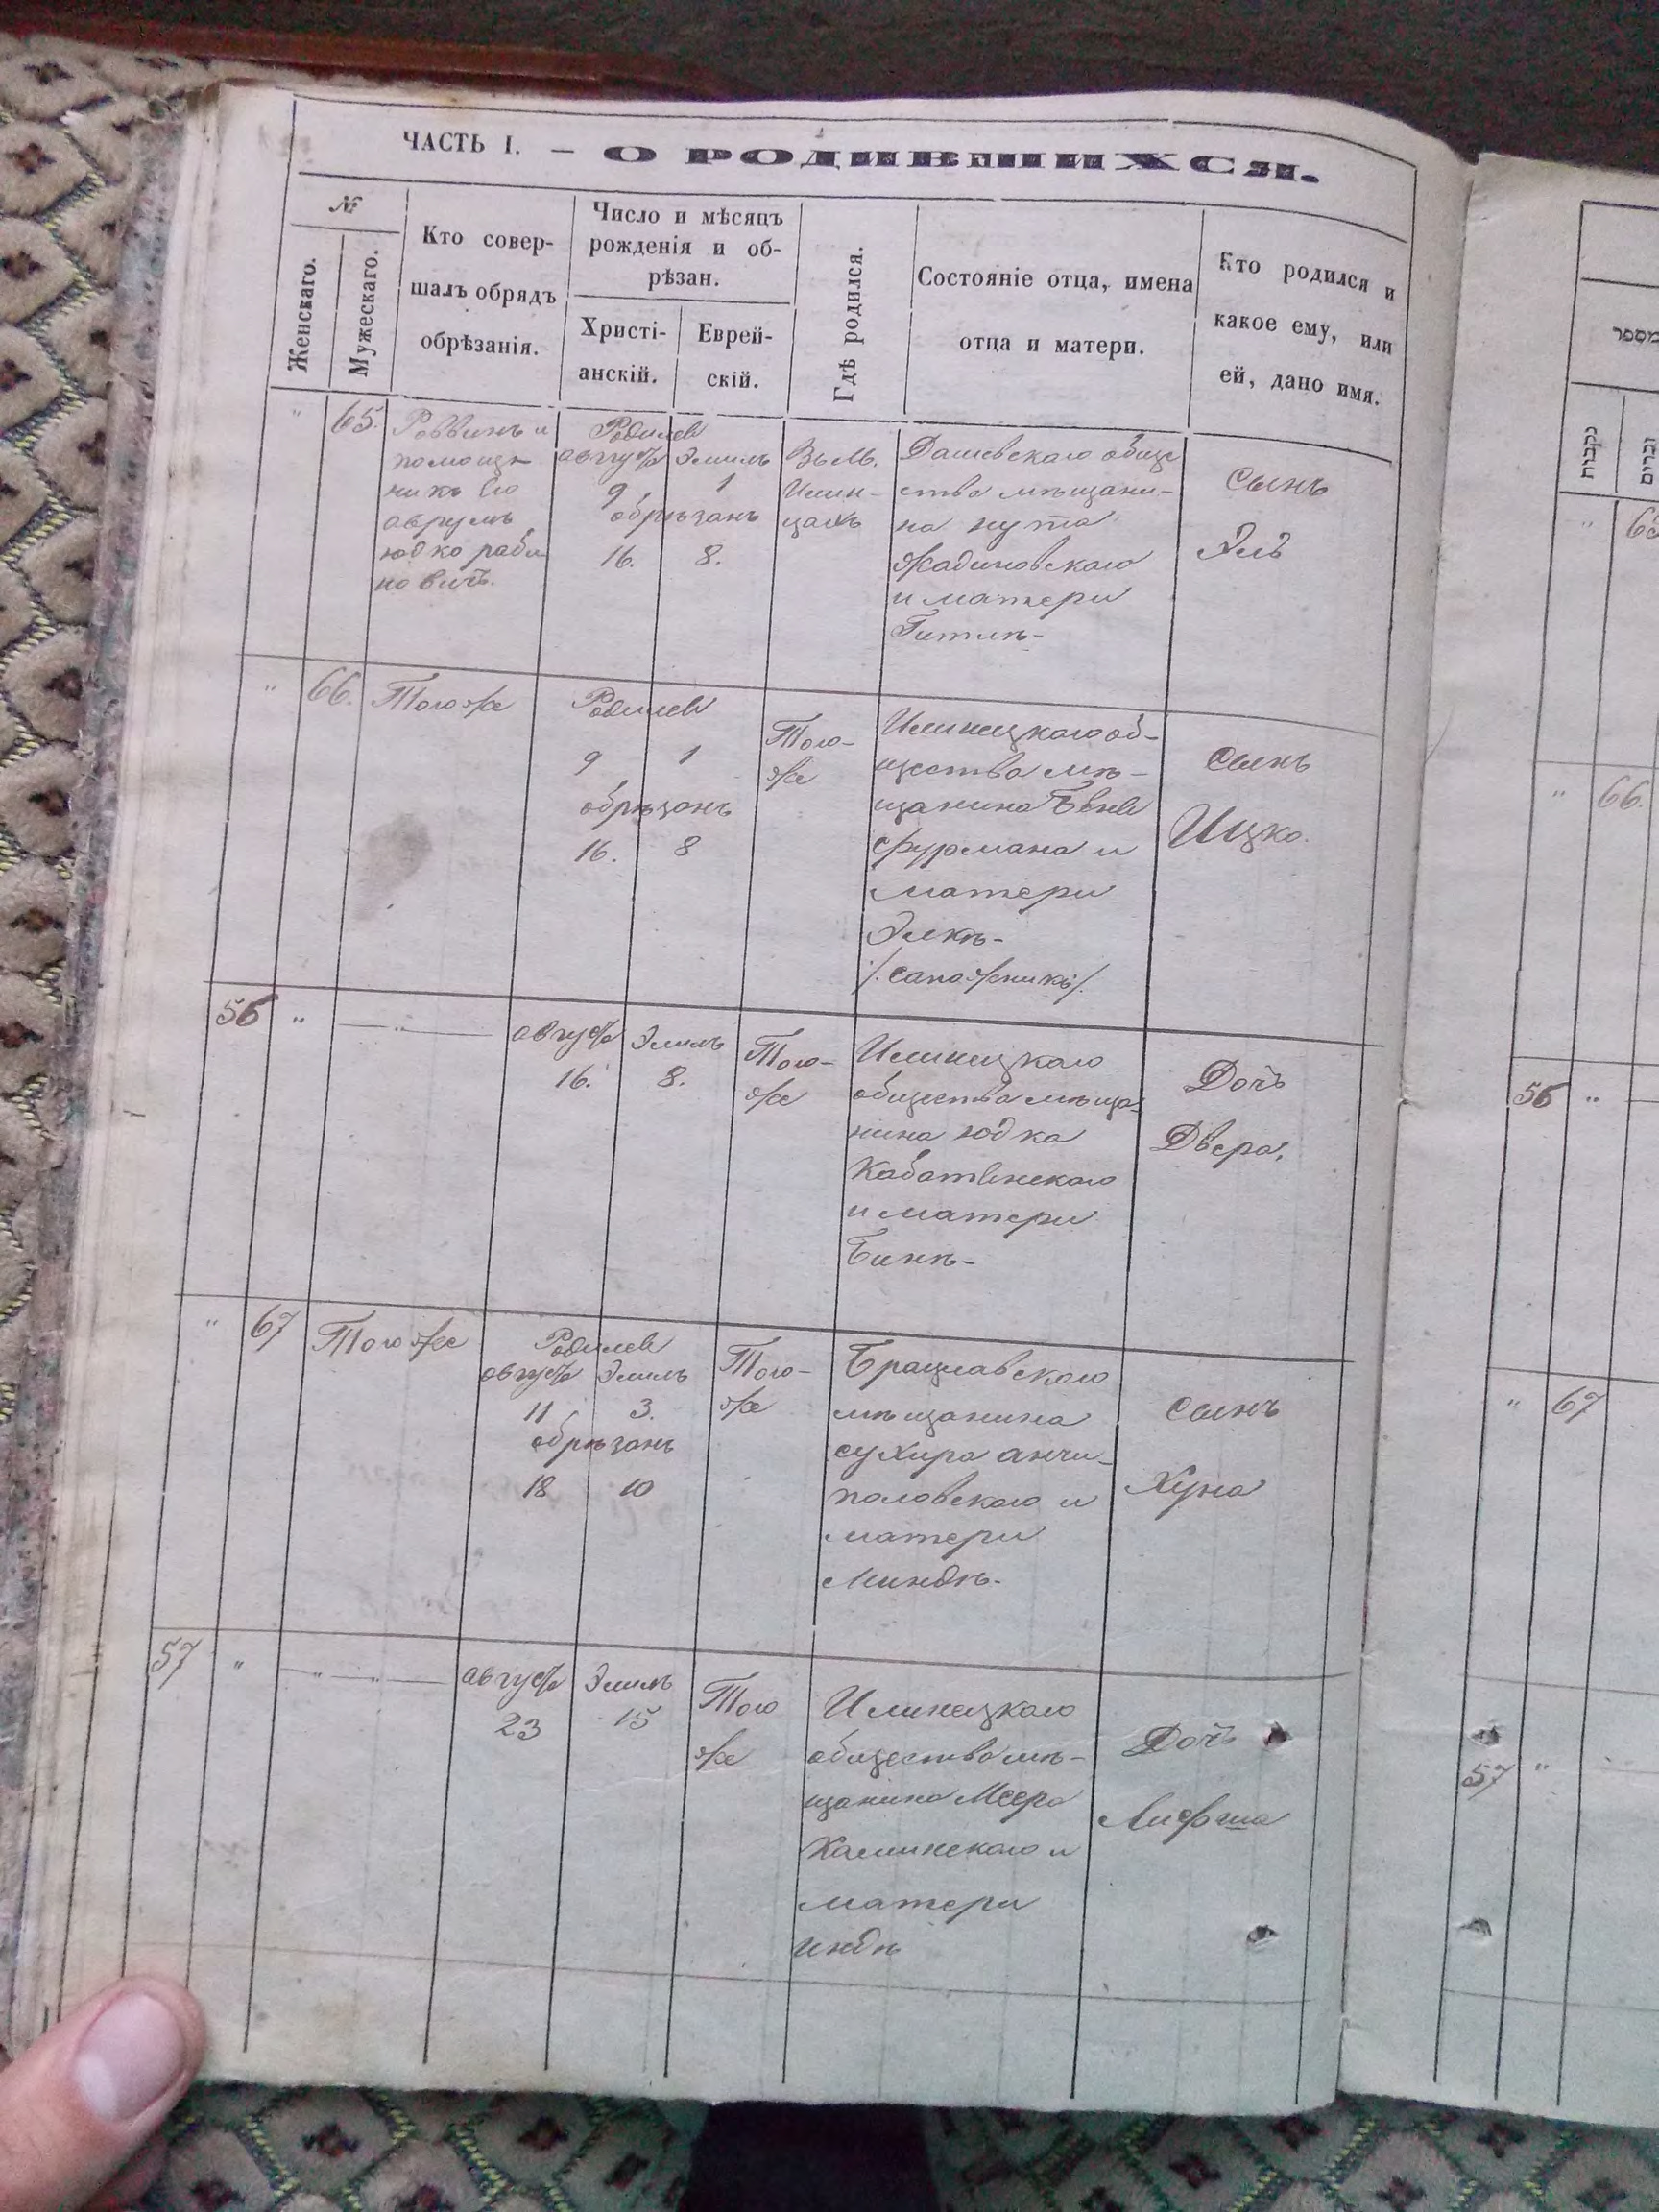 ЧАСТЬ I. — О РОДИВШИХСЯ.
№
Женскаго.
Мужескаго.
Кто совер-
шалъ обрядъ
обрѣзанія.
Число и мѣсяцъ
рожденія и об-
рѣзан.
Христі-
анскій.
Еврей-
скій.
Гдѣ родился.
Состояніе отца, имена
отца и матери.
Кто родился и
какое ему, или
ей, дано имя.
" 65.
Раввинъ и
помощ-
никъ его
аврумъ
юдко раби-
новичъ.
Родился
августа Элилъ
9 1
обрѣзанъ
16. 8.
Въ м.
Илин-
цахъ
Дашевскаго обще
ства мѣщани-
на нута
и матери
Гитлѣ-
сынъ
Эль
" 66.
Того же
Родился
9 1
обрѣзанъ
16. 8
Того-
же
Илинецкаго об-
щества мѣ-
щанина
Фурмана и
матери
Элкѣ-
/:сапожникъ:/
сынъ
Ицко.
56 " — " —
августа Элилъ
16. 8.
Того-
же
Илинецкаго
общества мѣща-
нина юдка
и матери
Бинѣ-
Дочь
Двера.
" 67
Того же
Родился
августа Элилъ
11 3.
обрѣзанъ
18 10
Того-
же
Брацлавскаго
мѣщанина
сухира анчи-
половскаго и
матери
Миндѣ-
сынъ
Хуна
57 " — " — " —
августа Элилъ
23 15
Того
же
Илинецкаго
общества мѣ-
щанина Меера
Калинскаго и
матери
индѣ
Дочь
Лифша
מספר
נקבות
זכרים
" 65
" 66.
56 " —
" 67
57 "